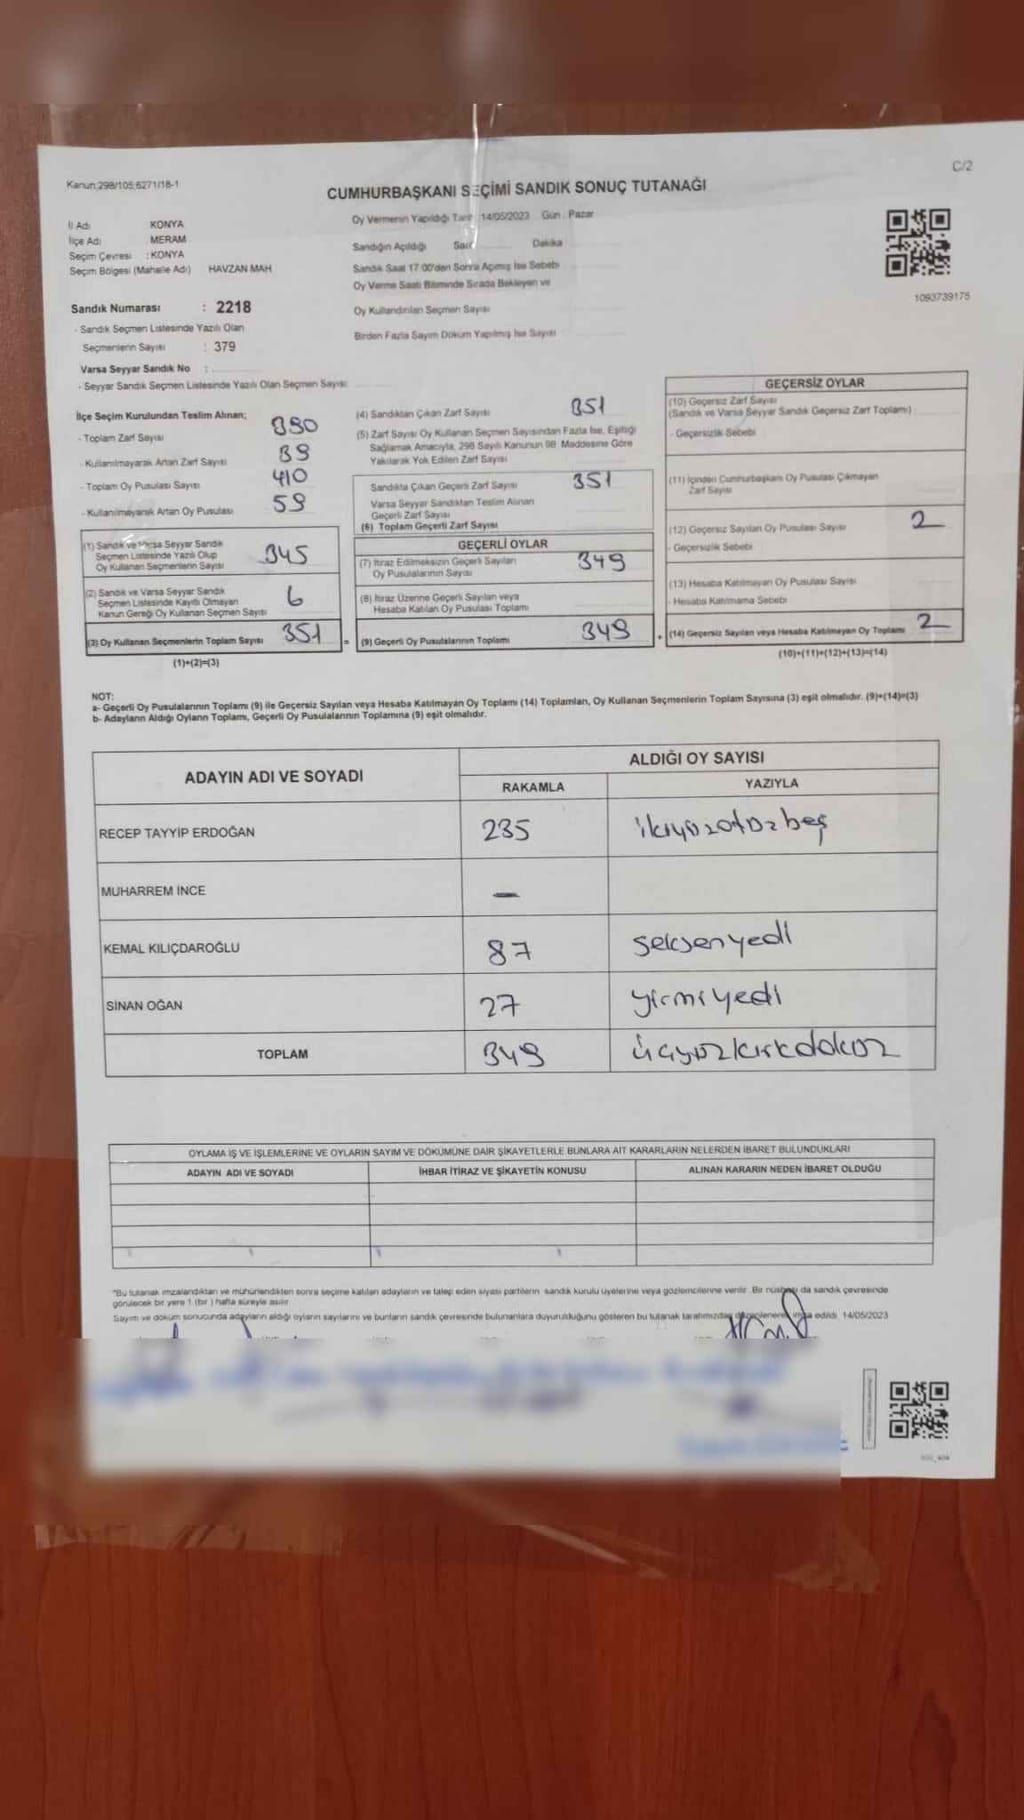 C/2
Kanun:298/105;6271/18-1
CUMHURBAŞKANI SEÇİMİ SANDIK SONUÇ TUTANAĞI
İl Adı KONYA
İlçe Adı MERAM
Seçim Çevresi : KONYA
Seçim Bölgesi (Mahalle Adı) HAVZAN MAH
Oy Vermenin Yapıldığı Tarih 14/05/2023 Gün : Pazar
Sandığın Açıldığı Saat Dakika
Sandık Saat 17 00'den Sonra Açılmış İse Sebebi
Oy Verme Saati Bitiminde Sırada Bekleyen ve
Oy Kullandırılan Seçmen Sayısı
Birden Fazla Sayım Döküm Yapılmış İse Sayısı
1093739175
Sandık Numarası : 2218
- Sandık Seçmen Listesinde Yazılı Olan
Seçmenlerin Sayısı : 379
Varsa Seyyar Sandık No :
- Seyyar Sandık Seçmen Listesinde Yazılı Olan Seçmen Sayısı
İlçe Seçim Kurulundan Teslim Alınan;
- Toplam Zarf Sayısı 390
- Kullanılmayarak Artan Zarf Sayısı 39
- Toplam Oy Pusulası Sayısı 410
- Kullanılmayarak Artan Oy Pusulası 59
(1) Sandık ve Varsa Seyyar Sandık
Seçmen Listesinde Yazılı Olup
Oy Kullanan Seçmenlerin Sayısı 345
(2) Sandık ve Varsa Seyyar Sandık
Seçmen Listesinde Kayıtlı Olmayan
Kanun Gereği Oy Kullanan Seçmen Sayısı 6
(3) Oy Kullanan Seçmenlerin Toplam Sayısı 351 =
(1)+(2)=(3)
(4) Sandıktan Çıkan Zarf Sayısı 351
(5) Zarf Sayısı Oy Kullanan Seçmen Sayısından Fazla İse, Eşitliği
Sağlamak Amacıyla, 298 Sayılı Kanunun 98. Maddesine Göre
Yakılarak Yok Edilen Zarf Sayısı
Sandıkta Çıkan Geçerli Zarf Sayısı 351
Varsa Seyyar Sandıktan Teslim Alınan
Geçerli Zarf Sayısı
(6) Toplam Geçerli Zarf Sayısı
GEÇERLİ OYLAR
(7) İtiraz Edilmeksizin Geçerli Sayılan
Oy Pusulalarının Sayısı 349
(8) İtiraz Üzerine Geçerli Sayılan veya
Hesaba Katılan Oy Pusulası Toplamı
(9) Geçerli Oy Pusulalarının Toplamı 349 +
GEÇERSİZ OYLAR
(10) Geçersiz Zarf Sayısı
(Sandık ve Varsa Seyyar Sandık Geçersiz Zarf Toplamı)
- Geçersizlik Sebebi
(11) İçinden Cumhurbaşkanı Oy Pusulası Çıkmayan
Zarf Sayısı
(12) Geçersiz Sayılan Oy Pusulası Sayısı 2
- Geçersizlik Sebebi
(13) Hesaba Katılmayan Oy Pusulası Sayısı
- Hesaba Katılmama Sebebi
(14) Geçersiz Sayılan veya Hesaba Katılmayan Oy Toplamı 2
(10)+(11)+(12)+(13)=(14)
NOT:
a- Geçerli Oy Pusulalarının Toplamı (9) ile Geçersiz Sayılan veya Hesaba Katılmayan Oy Toplamı (14) Toplamları, Oy Kullanan Seçmenlerin Toplam Sayısına (3) eşit olmalıdır. (9)+(14)=(3)
b- Adayların Aldığı Oyların Toplamı, Geçerli Oy Pusulalarının Toplamına (9) eşit olmalıdır.
ADAYIN ADI VE SOYADI ALDIĞI OY SAYISI
RAKAMLA YAZIYLA
RECEP TAYYİP ERDOĞAN 235 ikiyüzotuzbeş
MUHARREM İNCE –
KEMAL KILIÇDAROĞLU 87 seksenyedi
SİNAN OĞAN 27 yirmiyedi
TOPLAM 349 üçyüzkırkdokuz
OYLAMA İŞ VE İŞLEMLERİNE VE OYLARIN SAYIM VE DÖKÜMÜNE DAİR ŞİKAYETLERLE BUNLARA AİT KARARLARIN NELERDEN İBARET BULUNDUKLARI
ADAYIN ADI VE SOYADI İHBAR İTİRAZ VE ŞİKAYETİN KONUSU ALINAN KARARIN NEDEN İBARET OLDUĞU
"Bu tutanak imzalandıktan ve mühürlendikten sonra seçime katılan adayların ve talep eden siyasi partilerin sandık kurulu üyelerine veya gözlemcilerine verilir. Bir nüshası da sandık çevresinde
görülecek bir yere 1 (bir) hafta süreyle asılır.
Sayım ve döküm sonucunda adayların aldığı oyların sayılarını ve bunların sandık çevresinde bulunanlara duyurulduğunu gösteren bu tutanak tarafımızdan düzenlenerek imza edildi. 14/05/2023